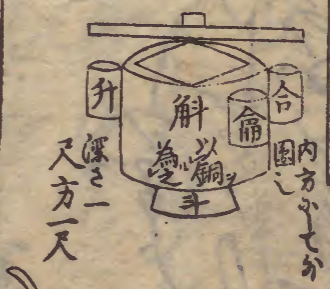 内方にして外
圓し
合
龠
斛
以銅
為之
斗
升
深さ一
尺方一尺